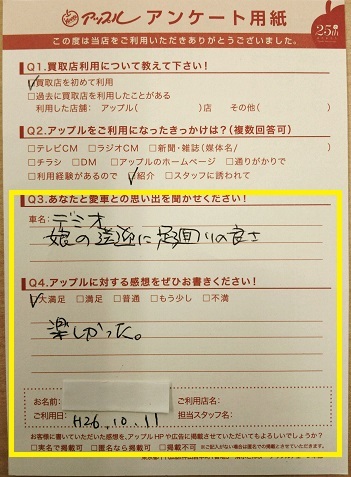 アップル アンケート用紙 25th
この度は当店をご利用いただきありがとうございました。
Q1.買取店利用について教えて下さい!
□買取店を初めて利用
□過去に買取を利用したことがある
利用した店舗: アップル( )店 その他( )
Q2.アップルをご利用になったきっかけは?(複数回答可)
□テレビCM □ラジオCM □新聞・雑誌(媒体名/ )
□チラシ □DM □アップルのホームページ □通りがかりで
□利用経験があるので □紹介 □スタッフに誘われて
Q3.あなたと愛車との思い出を聞かせください!
車名: デミオ
娘の送迎に 小回りの良さ
Q4.アップルに対する感想をぜひお書きください!
□大満足 □満足 □普通 □もう少し □不満
楽しかった。
お名前: ご利用店名:
ご利用日: H26.10.11 担当スタッフ名:
お客様に書いていただいた感想を、アップルHPや広告に掲載させていただいてもよろしいでしょうか?
□実名で掲載可 □匿名なら掲載可 □掲載不可 ※ご記入がない場合は匿名での掲載とさせていただきます。